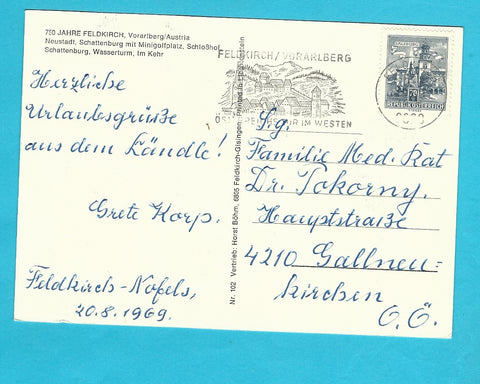 750 JAHRE FELDKIRCH, Vorarlberg/Austria
Neustadt, Schattenburg mit Minigolfplatz, Schloßhof
Schattenburg, Wasserturm, Im Kehr
Herzliche
Urlaubsgrüße
aus dem Ländle!
Grete Korp.
Feldkirch-Nofels,
20.8.1969.
Nr. 102 Vertrieb: Horst Böhm, 6805 Feldkirch-Gisingen
FELDKIRCH/VORARLBERG
IM WESTEN
REPUBLIK ÖSTERREICH
S.g.
Familie Med. Rat
Dr. Tokorny.
Hauptstraße
4210 Gallneu=
kirchen
O.Ö.